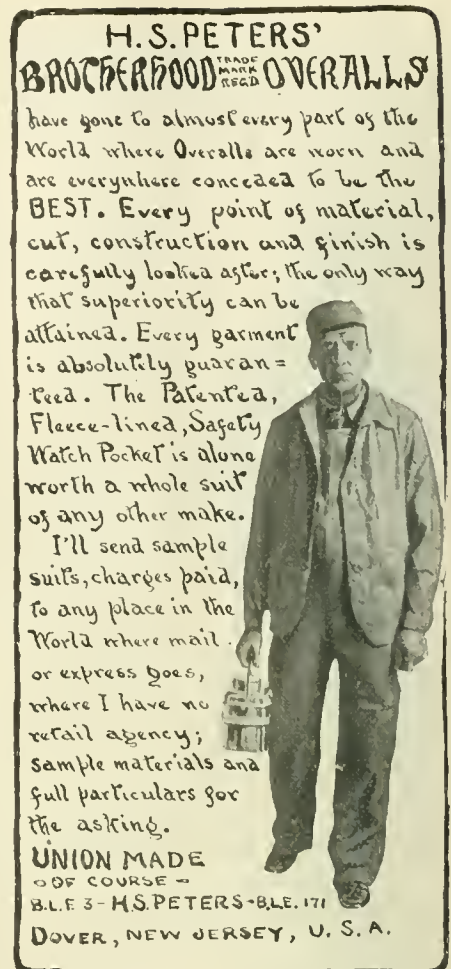 H.S. PETERS'
BROTHERHOOD TRADE MARK REG'D OVERALLS
have gone to almost every part of the
World where Overalls are worn and
are everywhere conceded to be the
BEST. Every point of material,
cut, construction and finish is
carefully looked after; the only way
that superiority can be
attained. Every garment
is absolutely guaran=
teed. The Patented,
Fleece-lined, Safety
Watch Pocket is alone
worth a whole suit
of any other make.
I'll send sample
suits, charges paid,
to any place in the
World where mail
or express goes,
where I have no
retail agency;
sample materials and
full particulars for
the asking.
UNION MADE
OF COURSE
B.L.F. 3 - H.S. PETERS - B.L.E. 171
DOVER, NEW JERSEY, U.S.A.